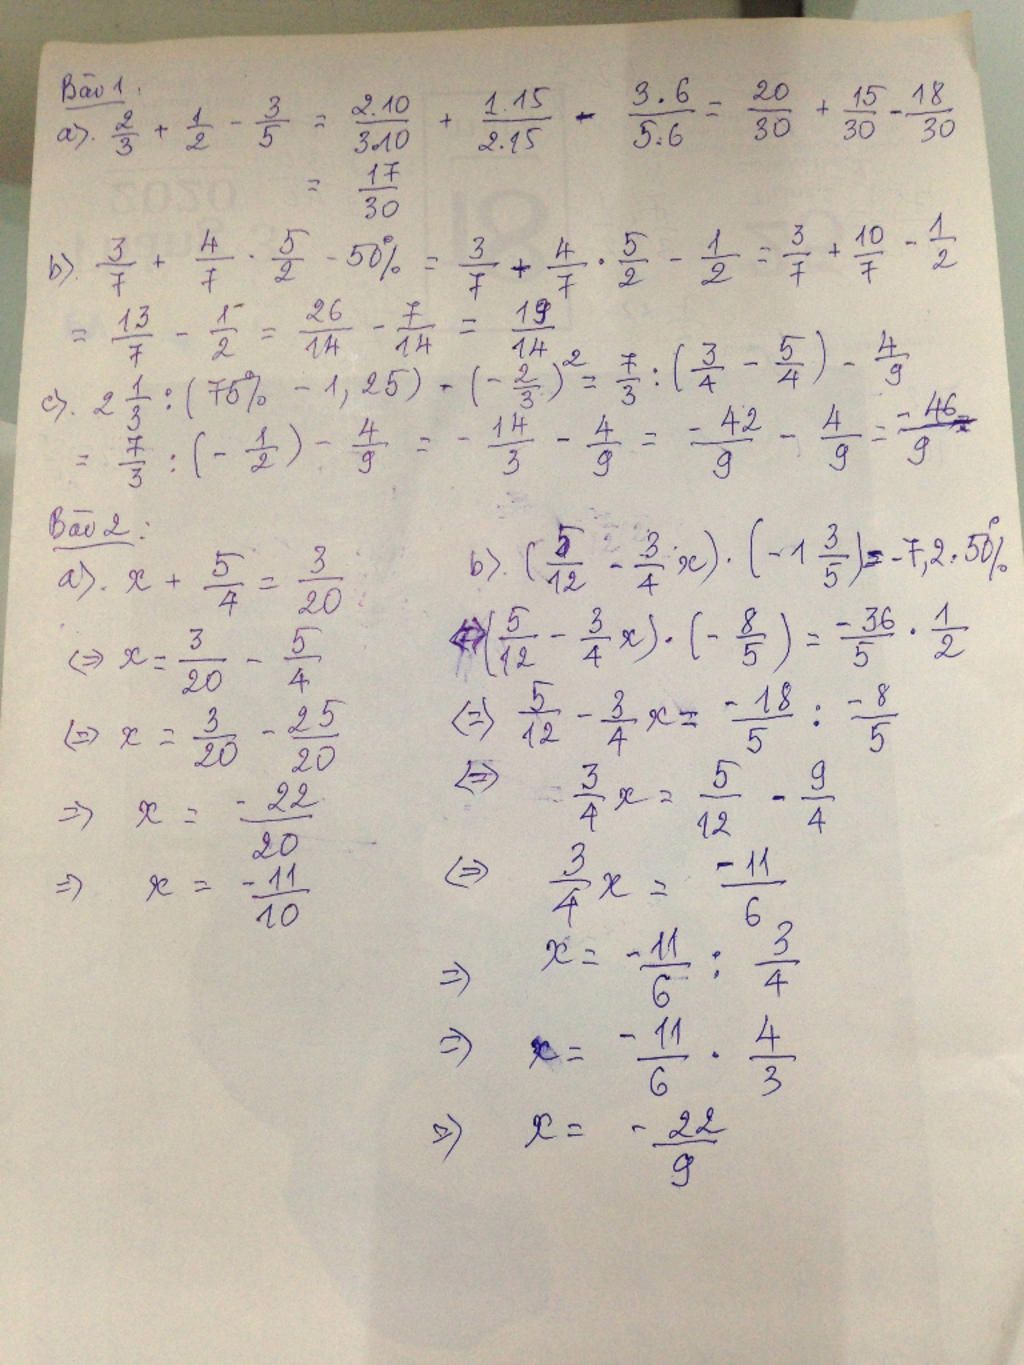 Bài 1:
a). 2/3 + 1/2 - 3/5 = 2.10/3.10 + 1.15/2.15 - 3.6/5.6 = 20/30 + 15/30 - 18/30
= 17/30
b). 3/7 + 4/7 . 5/2 - 50% = 3/7 + 4/7 . 5/2 - 1/2 = 3/7 + 10/7 - 1/2
= 13/7 - 1/2 = 26/14 - 7/14 = 19/14
c). 2 1/3 : (75% - 1,25) - (-2/3)² = 7/3 : (3/4 - 5/4) - 4/9
= 7/3 : (-1/2) - 4/9 = -14/3 - 4/9 = -42/9 - 4/9 = -46/9
Bài 2:
a). x + 5/4 = 3/20
<=> x = 3/20 - 5/4
<=> x = 3/20 - 25/20
=> x = -22/20
=> x = -11/10
b). (5/12 - 3/4 x) . (-1 3/5) = -7,2 . 50%
<=> (5/12 - 3/4 x) . (-8/5) = -36/5 . 1/2
<=> 5/12 - 3/4 x = -18/5 : -8/5
<=> 3/4 x = 5/12 - 9/4
<=> 3/4 x = -11/6
=> x = -11/6 : 3/4
=> x = -11/6 . 4/3
=> x = -22/9